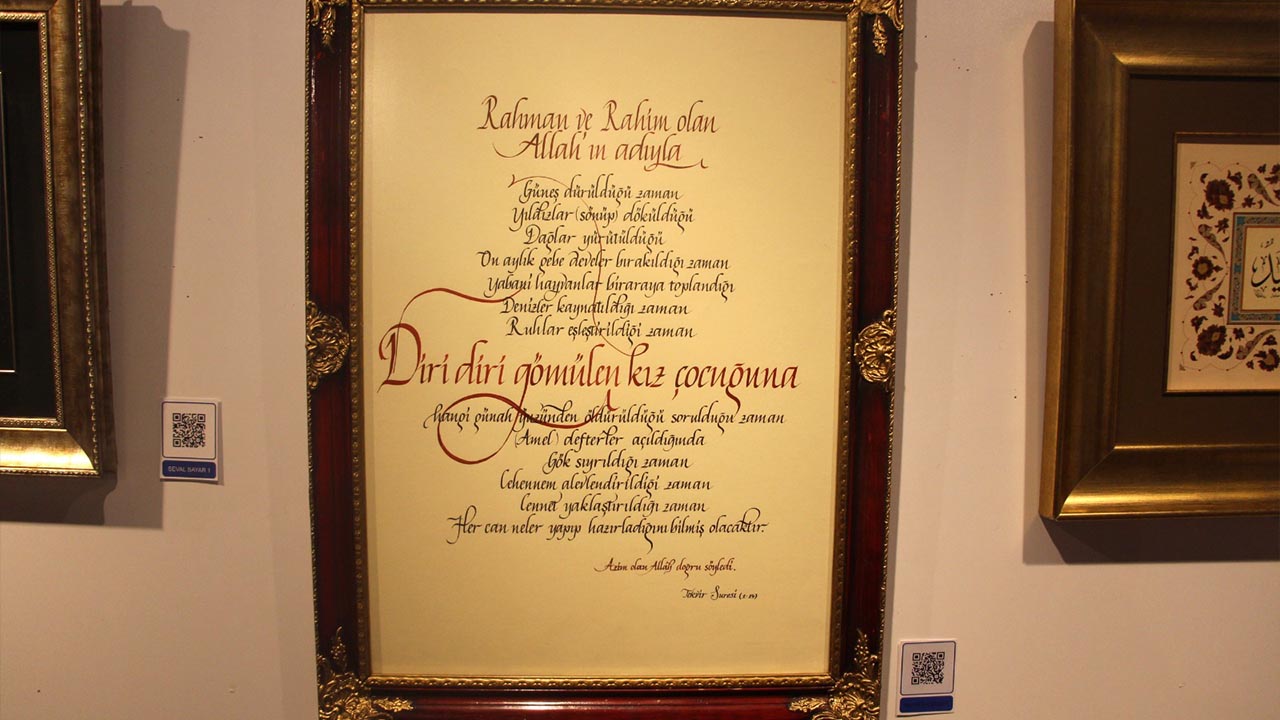 Rahman ve Rahim olan
Allah'ın adıyla
Güneş dürüldüğü zaman
Yıldızlar (sönüp) döküldüğü
Dağlar yürütüldüğü
On aylık gebe develer bırakıldığı zaman
Yabani hayvanlar biraraya toplandığı
Denizler kaynatıldığı zaman
Ruhlar eşleştirildiği zaman
Diri diri gömülen kız çocuğuna
hangi günah yüzünden öldürüldüğü sorulduğu zaman
(Amel) defterler açıldığında
Gök sıyrıldığı zaman
Cehennem alevlendirildiği zaman
Cennet yaklaştırıldığı zaman
Her can neler yapıp hazırladığını bilmiş olacaktır.
Azim olan Allah doğru söyledi.
Tekvir Suresi (1-14)
SEVAL SAYAR 1